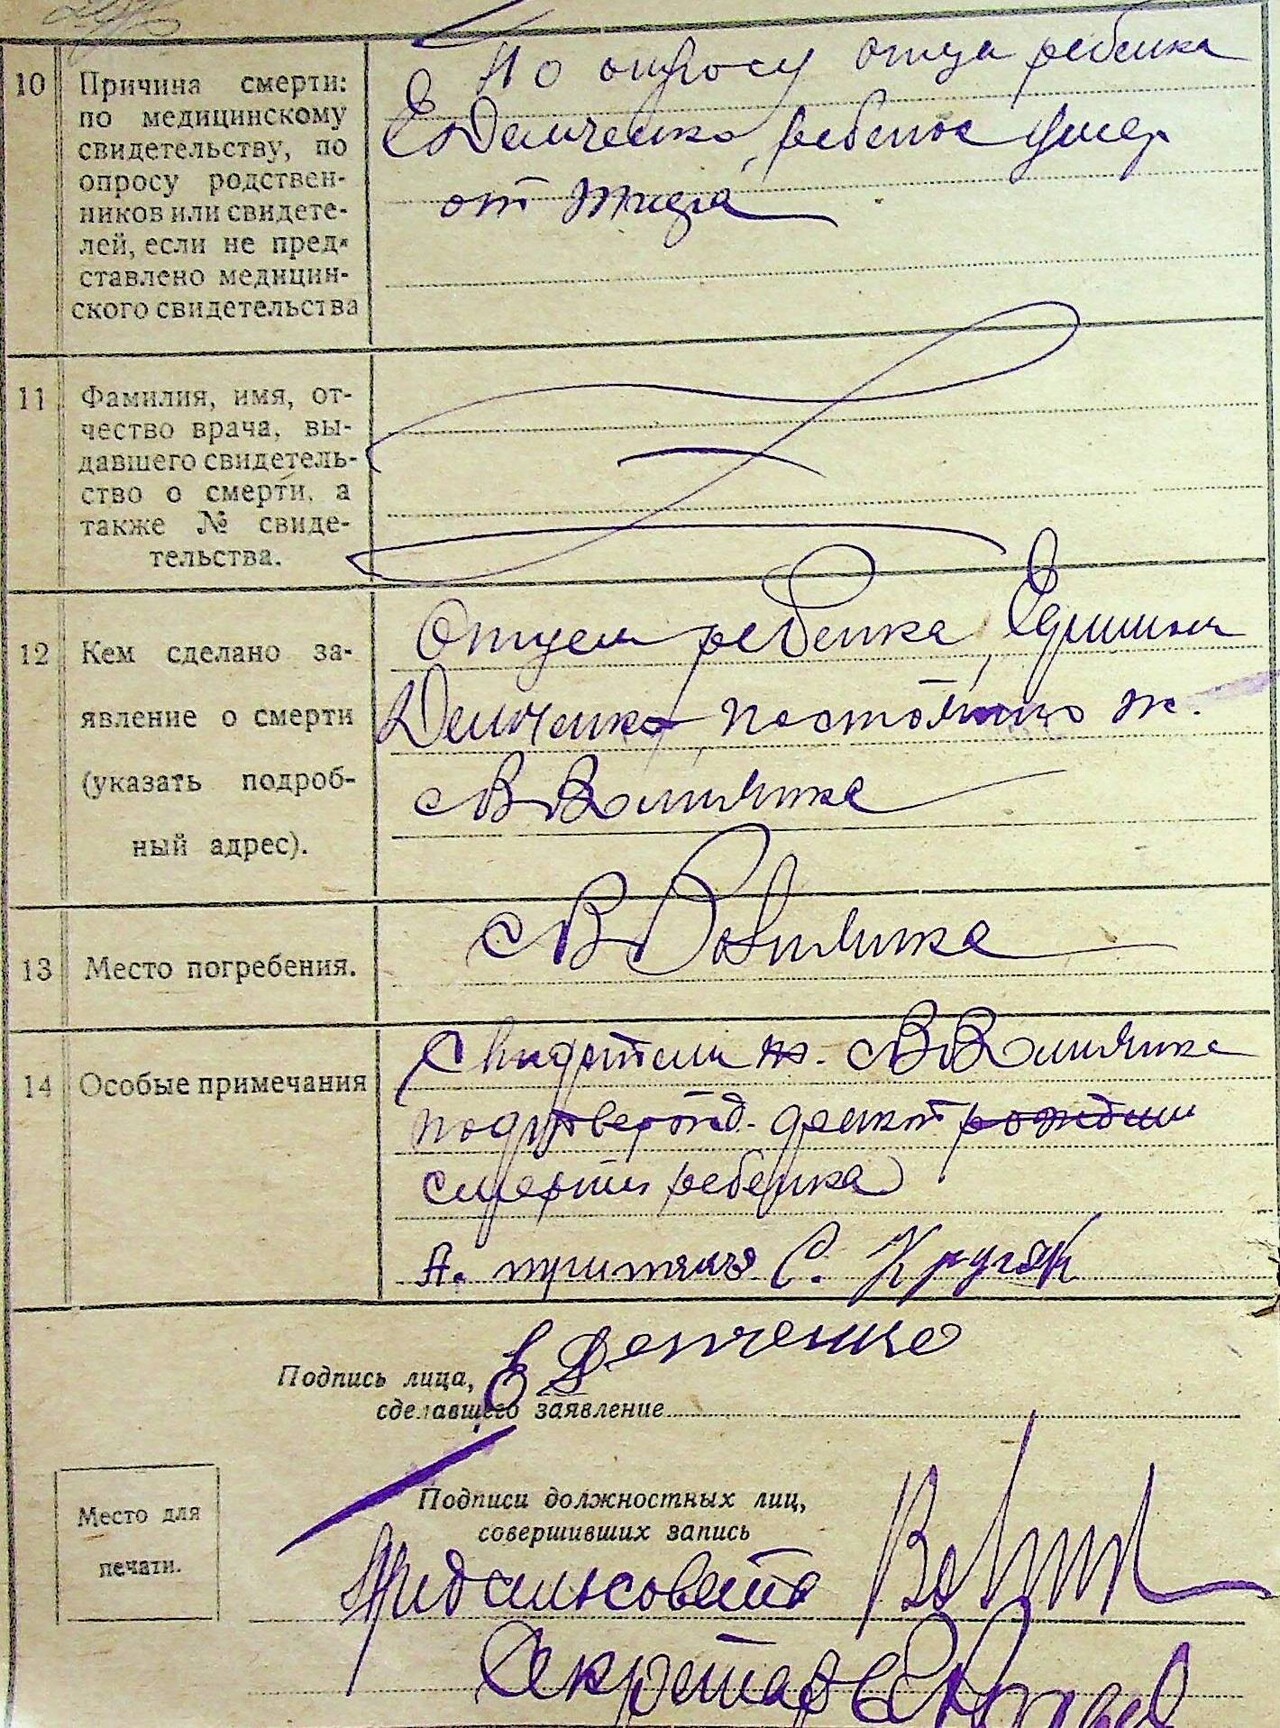 10 Причина смерти:
по медицинскому
свидетельству, по
опросу родствен-
ников или свидете-
лей, если не пред-
ставлено медицин-
ского свидетельства
По опросу отца ребенка
Е Демченко, ребенок умер
от
11 Фамилия, имя, от-
чество врача, вы-
давшего свидетель-
ство о смерти, а
также № свиде-
тельства.
12 Кем сделано за-
явление о смерти
(указать подроб-
ный адрес).
Отцем ребенка,
Демченко постоянно ж.
с В
13 Место погребения.
с В
14 Особые примечания
Свидетели ж. с В
подтвержд. факт рождени
смерти ребенка
А. С. Кругляк
Е Демченко
Подпись лица,
сделавшего заявление
Место для
печати.
Подписи должностных лиц,
совершивших запись
Предсельсовета
Секретарь